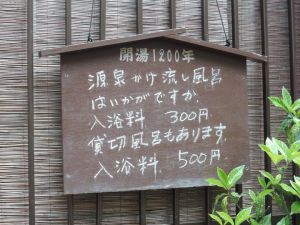 開湯1200年
源泉かけ流し風呂
はいかがですか。
入浴料 300円
貸切風呂もあります。
入浴料 500円